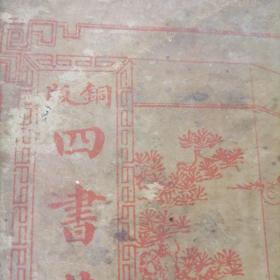 銅版
四書